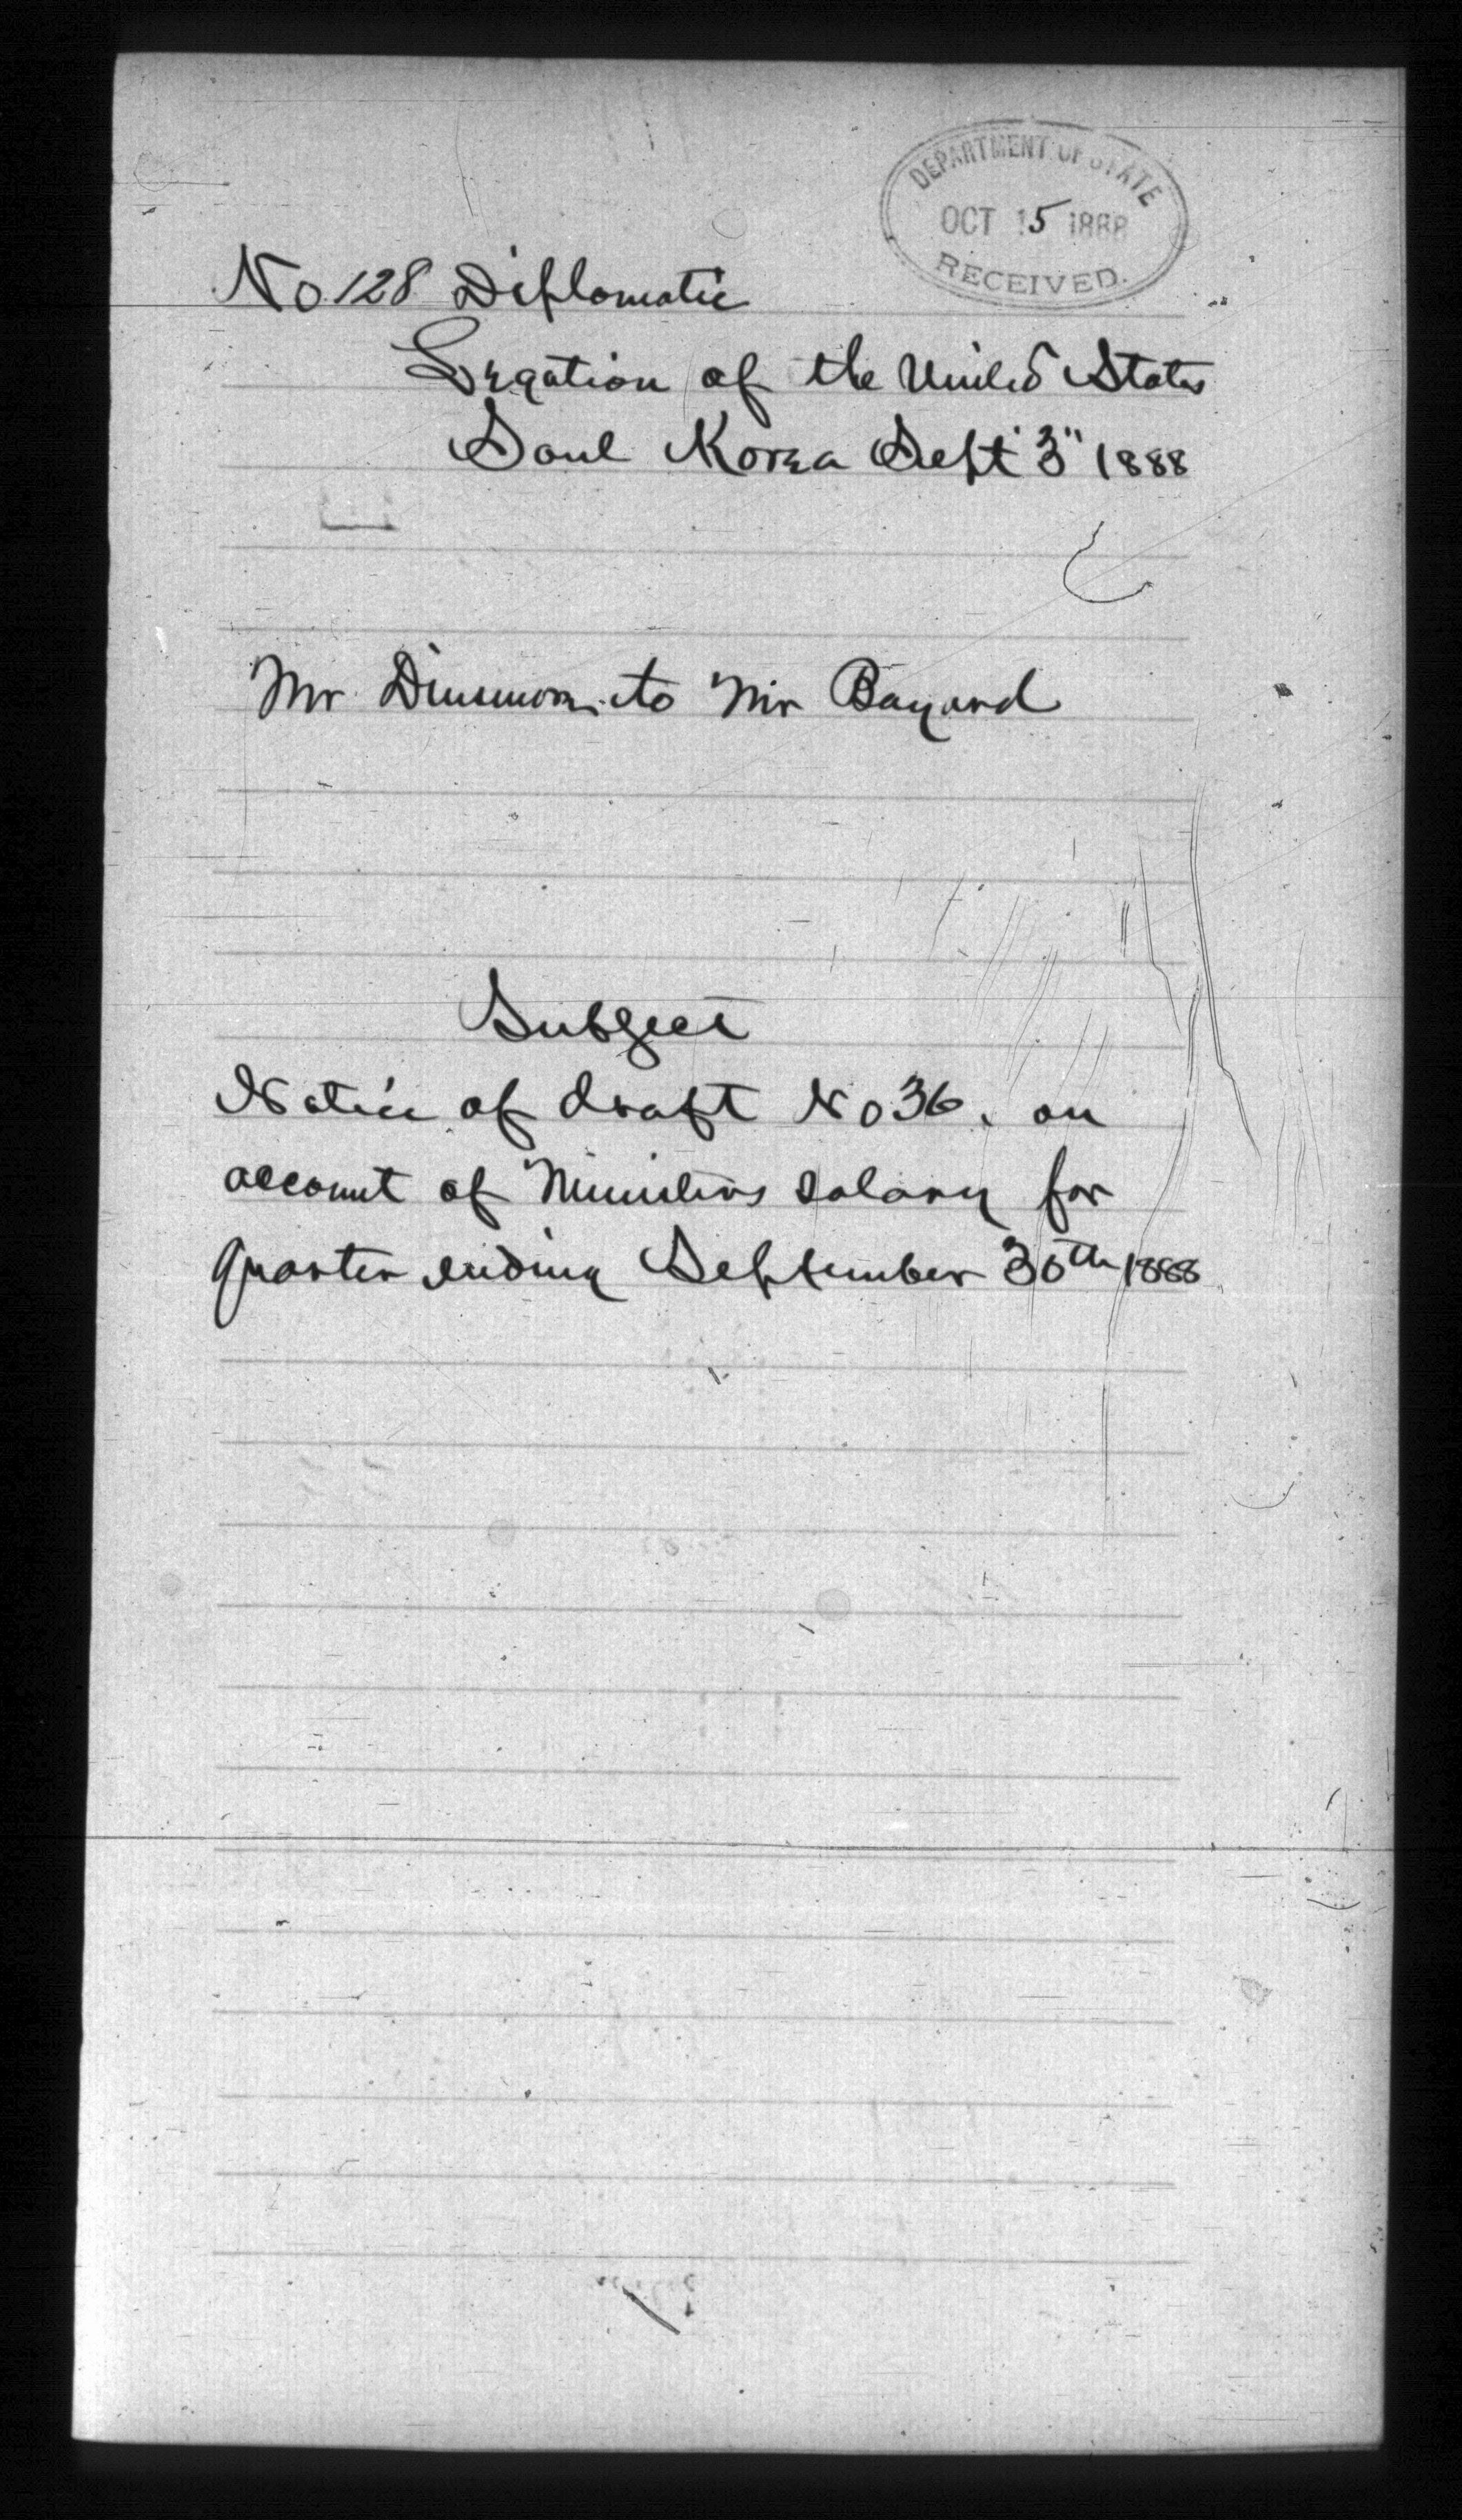 DEPARTMENT OF STATE
OCT 15 1888
RECEIVED.
No 128 Diplomatic
Legation of the United States
Soul Korea Sept 3" 1888
Mr Dinsmore to Mr Bayard
Subject
Notice of draft No 36. on
account of Ministers salary for
quarter ending September 30th 1888